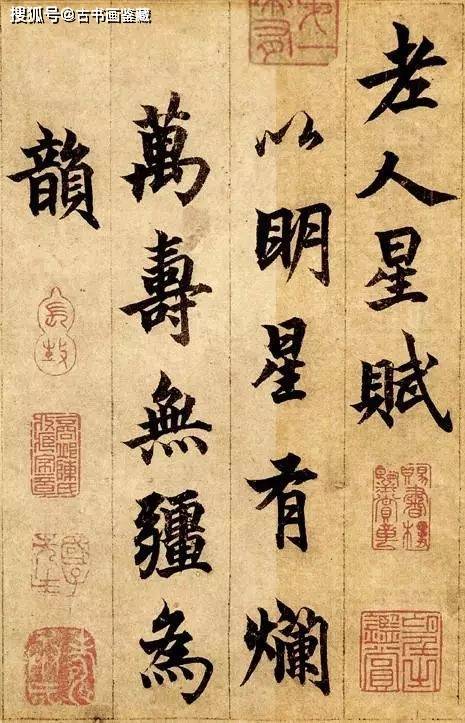 搜狐号@古书画鉴藏
老人星賦
以明星有爛
萬壽無疆為
韻